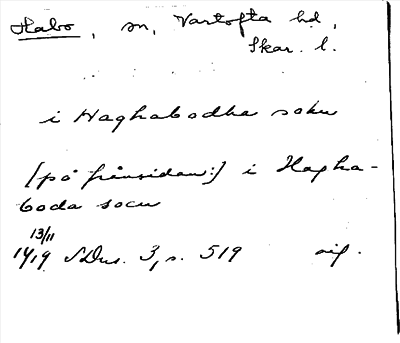 Habo, sn, Vartofta hd,
Skar. l.
i Haghabodha sokn
[på frånsidan:] i Hagha-
boda socn
13/11
1419 SDns. 3, s. 519 sig.